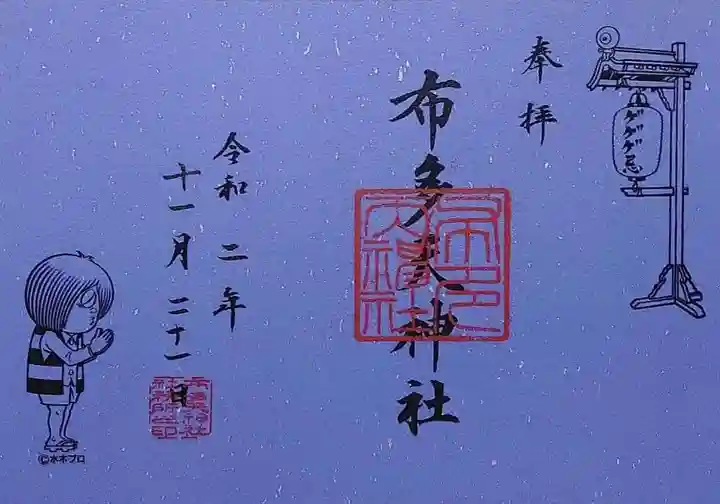 奉拝
ゲゲゲ忌
布多天神社
令和二年
十一月二十一日
©水木プロ